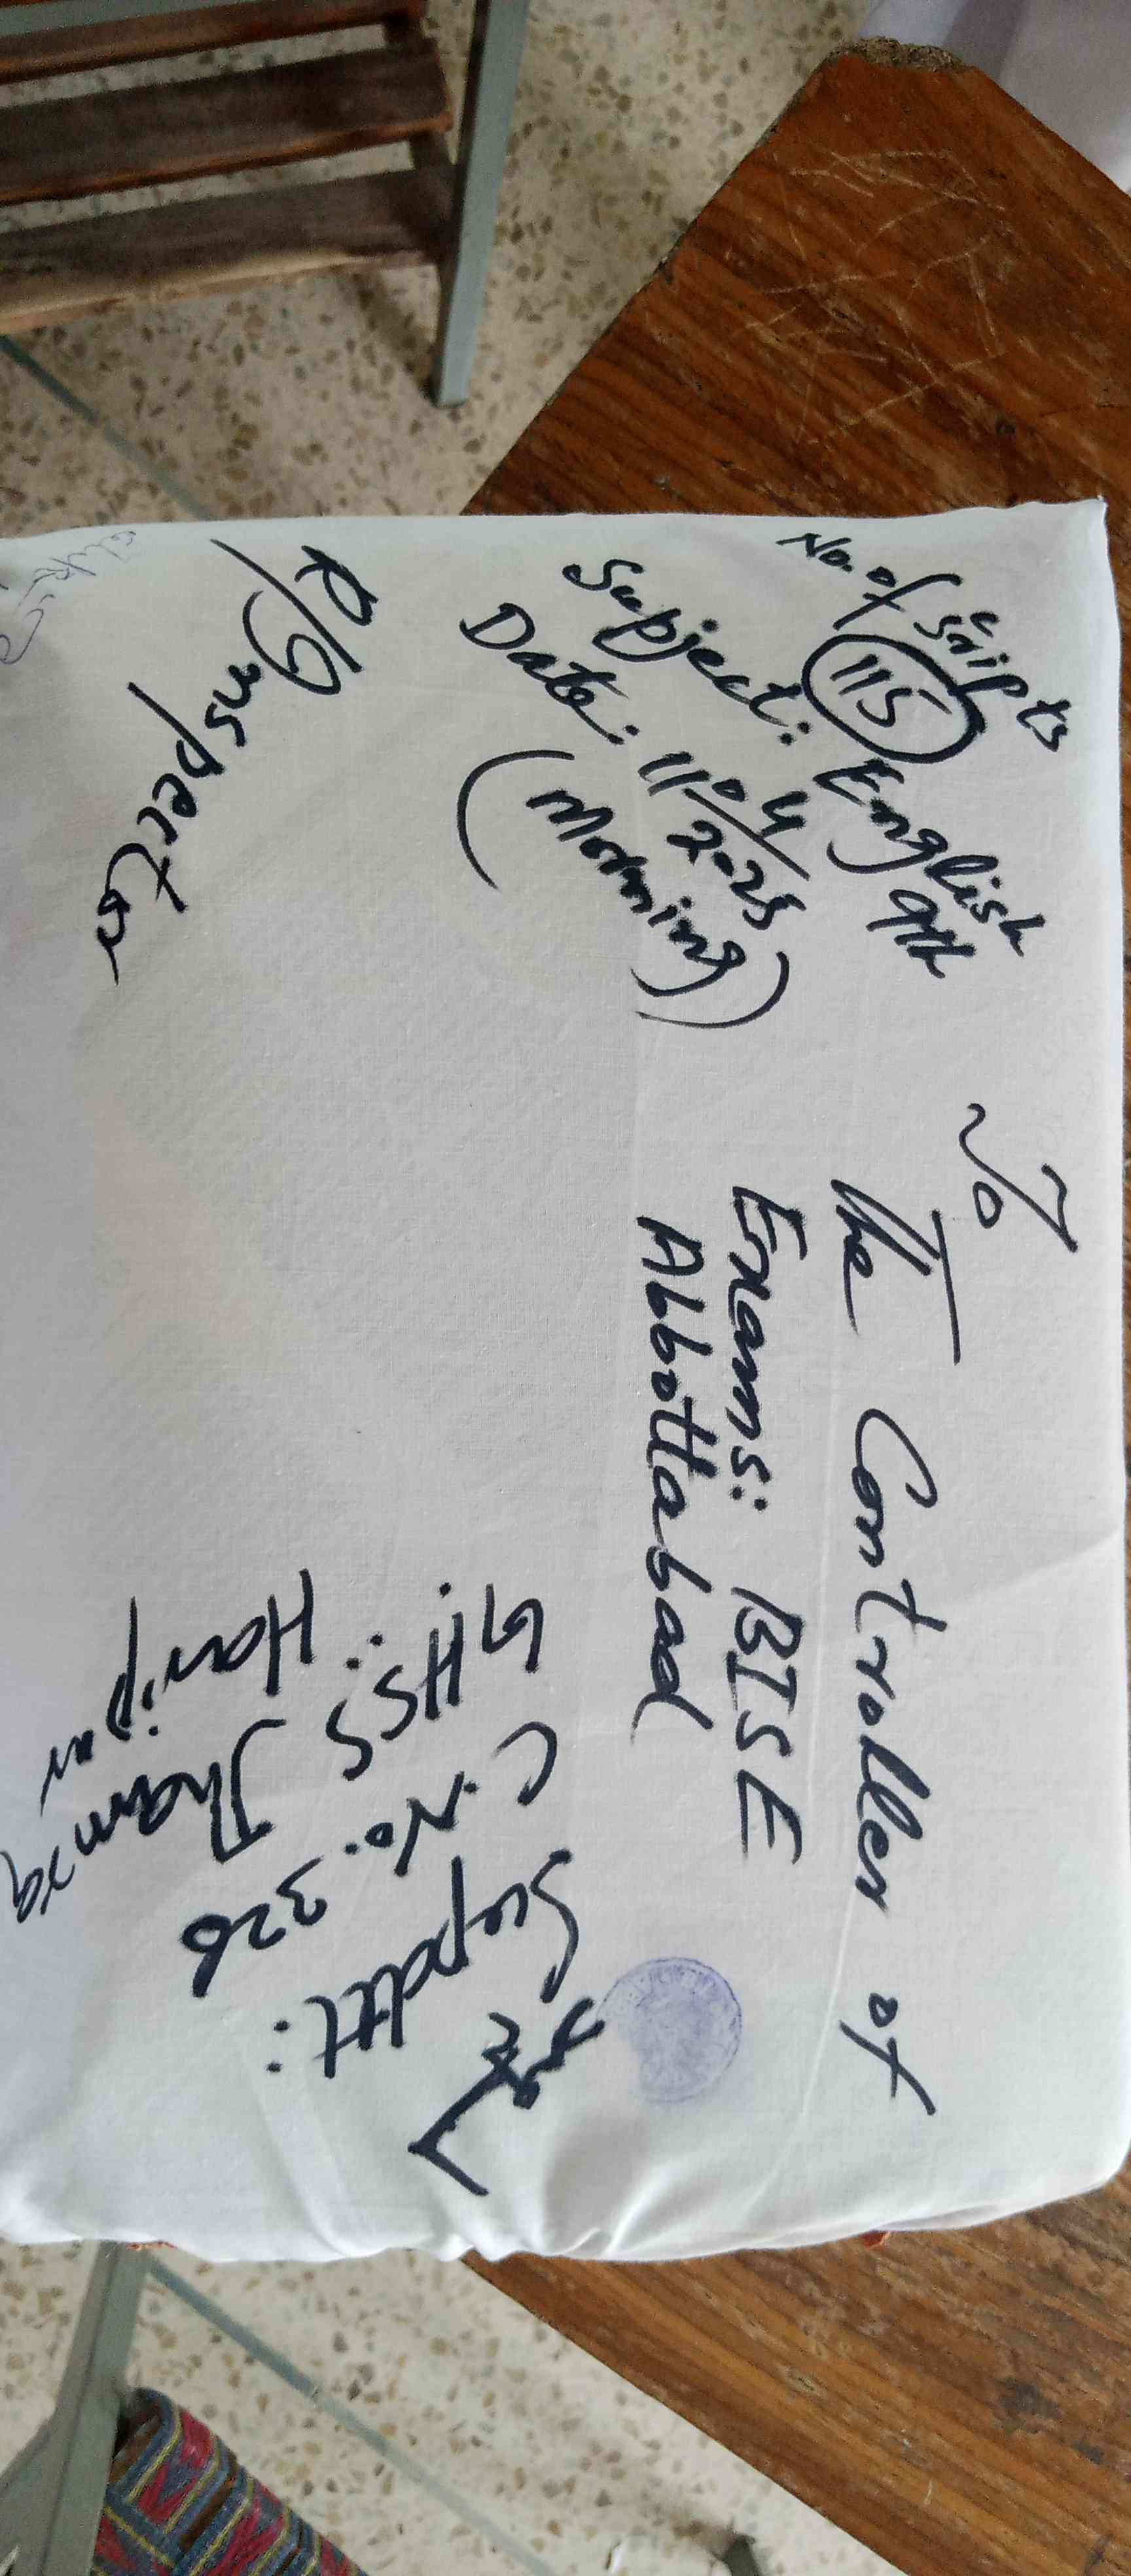 No. of Scripts
115
Subject: English 9th
Date: 11/04/2025
(Morning)
To
The Controller of
Exams: BISE
Abbottabad
R/Inspector
Supdtt:
C. No. 326
GHSS Jhamra
Haripur